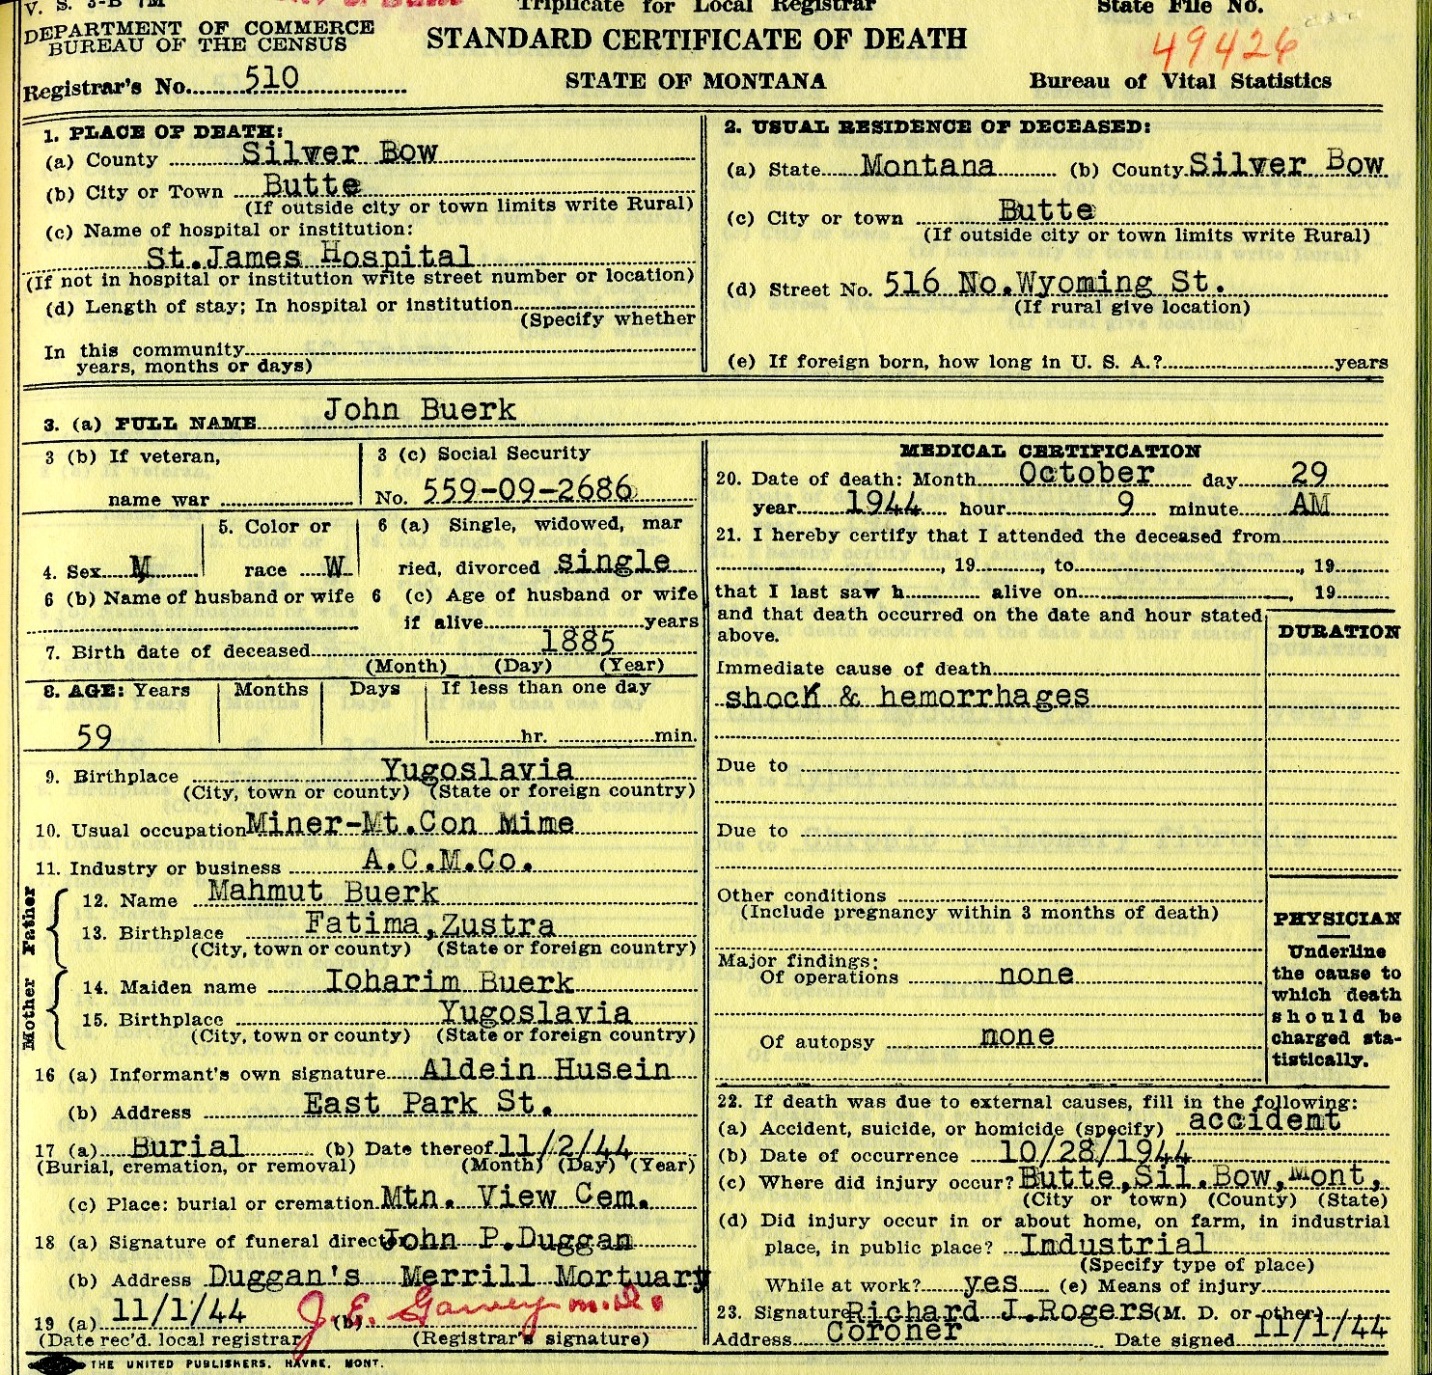 V. S. 3-B
Triplicate for Local Registrar
State File No.
DEPARTMENT OF COMMERCE
BUREAU OF THE CENSUS
STANDARD CERTIFICATE OF DEATH
49426
Registrar's No. 510
STATE OF MONTANA
Bureau of Vital Statistics
1. PLACE OF DEATH:
(a) County Silver Bow
(b) City or Town Butte
(If outside city or town limits write Rural)
(c) Name of hospital or institution:
St.James Hospital
(If not in hospital or institution write street number or location)
(d) Length of stay; In hospital or institution
(Specify whether
In this community
years, months or days)
2. USUAL RESIDENCE OF DECEASED:
(a) State Montana (b) County Silver Bow
(c) City or town Butte
(If outside city or town limits write Rural)
(d) Street No. 516 No.Wyoming St.
(If rural give location)
(e) If foreign born, how long in U. S. A.? years
3. (a) FULL NAME John Buerk
3 (b) If veteran,
name war
3 (c) Social Security
No. 559-09-2686
4. Sex M
5. Color or
race W
6 (a) Single, widowed, mar
ried, divorced single
6 (b) Name of husband or wife
6 (c) Age of husband or wife
if alive years
7. Birth date of deceased 1885
(Month) (Day) (Year)
8. AGE: Years Months Days If less than one day
59 hr. min.
9. Birthplace Yugoslavia
(City, town or county) (State or foreign country)
10. Usual occupation Miner-Mt.Con Mime
11. Industry or business A.C.M.Co.
Father
12. Name Mahmut Buerk
13. Birthplace Fatima,Zustra
(City, town or county) (State or foreign country)
Mother
14. Maiden name Ioharim Buerk
15. Birthplace Yugoslavia
(City, town or county) (State or foreign country)
16 (a) Informant's own signature Aldein Husein
(b) Address East Park St.
17 (a) Burial (b) Date thereof 11/2/44
(Burial, cremation, or removal) (Month) (Day) (Year)
(c) Place: burial or cremation Mtn. View Cem.
18 (a) Signature of funeral director John P.Duggan
(b) Address Duggan's Merrill Mortuary
19 (a) 11/1/44 (b) J. E. Garvey M.D.
(Date rec'd. local registrar (Registrar's signature)
THE UNITED PUBLISHERS, HAVRE, MONT.
MEDICAL CERTIFICATION
20. Date of death: Month October day 29
year 1944 hour 9 minute AM
21. I hereby certify that I attended the deceased from
, 19 , to , 19
that I last saw h alive on , 19
and that death occurred on the date and hour stated
above.
DURATION
Immediate cause of death
shock & hemorrhages
Due to
Due to
Other conditions
(Include pregnancy within 3 months of death)
Major findings:
Of operations none
Of autopsy none
PHYSICIAN
Underline
the cause to
which death
should be
charged sta-
tistically.
22. If death was due to external causes, fill in the following:
(a) Accident, suicide, or homicide (specify) accident
(b) Date of occurrence 10/28/1944
(c) Where did injury occur? Butte,Sil.Bow,Mont,
(City or town) (County) (State)
(d) Did injury occur in or about home, on farm, in industrial
place, in public place? Industrial
(Specify type of place)
While at work? yes (e) Means of injury
23. Signature Richard J.Rogers (M. D. or other)
Address Coroner Date signed 11/1/44